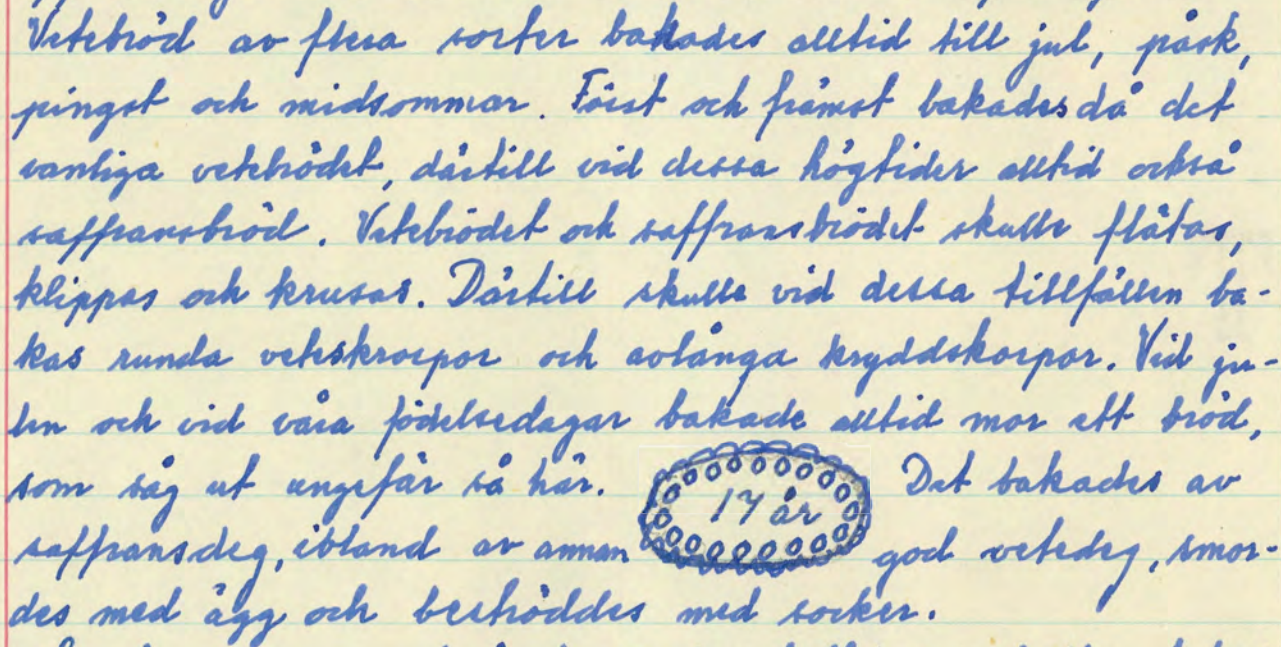 Vetebröd av flera sorter bakades alltid till jul, påsk,
pingst och midsommar. Först och främst bakades då det
vanliga vetebrödet, därtill vid dessa högtider alltid också
saffransbröd. Vetebrödet och saffransbrödet skulle flätas,
klippas och krusas. Därtill skulle vid dessa tillfällen ba-
kas runda veteskrorpor och avlånga kryddskorpor. Vid ju-
len och vid våra födelsedagar bakade alltid mor ett bröd,
som såg ut ungefär så här. 17 år Det bakades av
saffransdeg, ibland av annan god vetedeg, smor-
des med ägg och beströddes med socker.